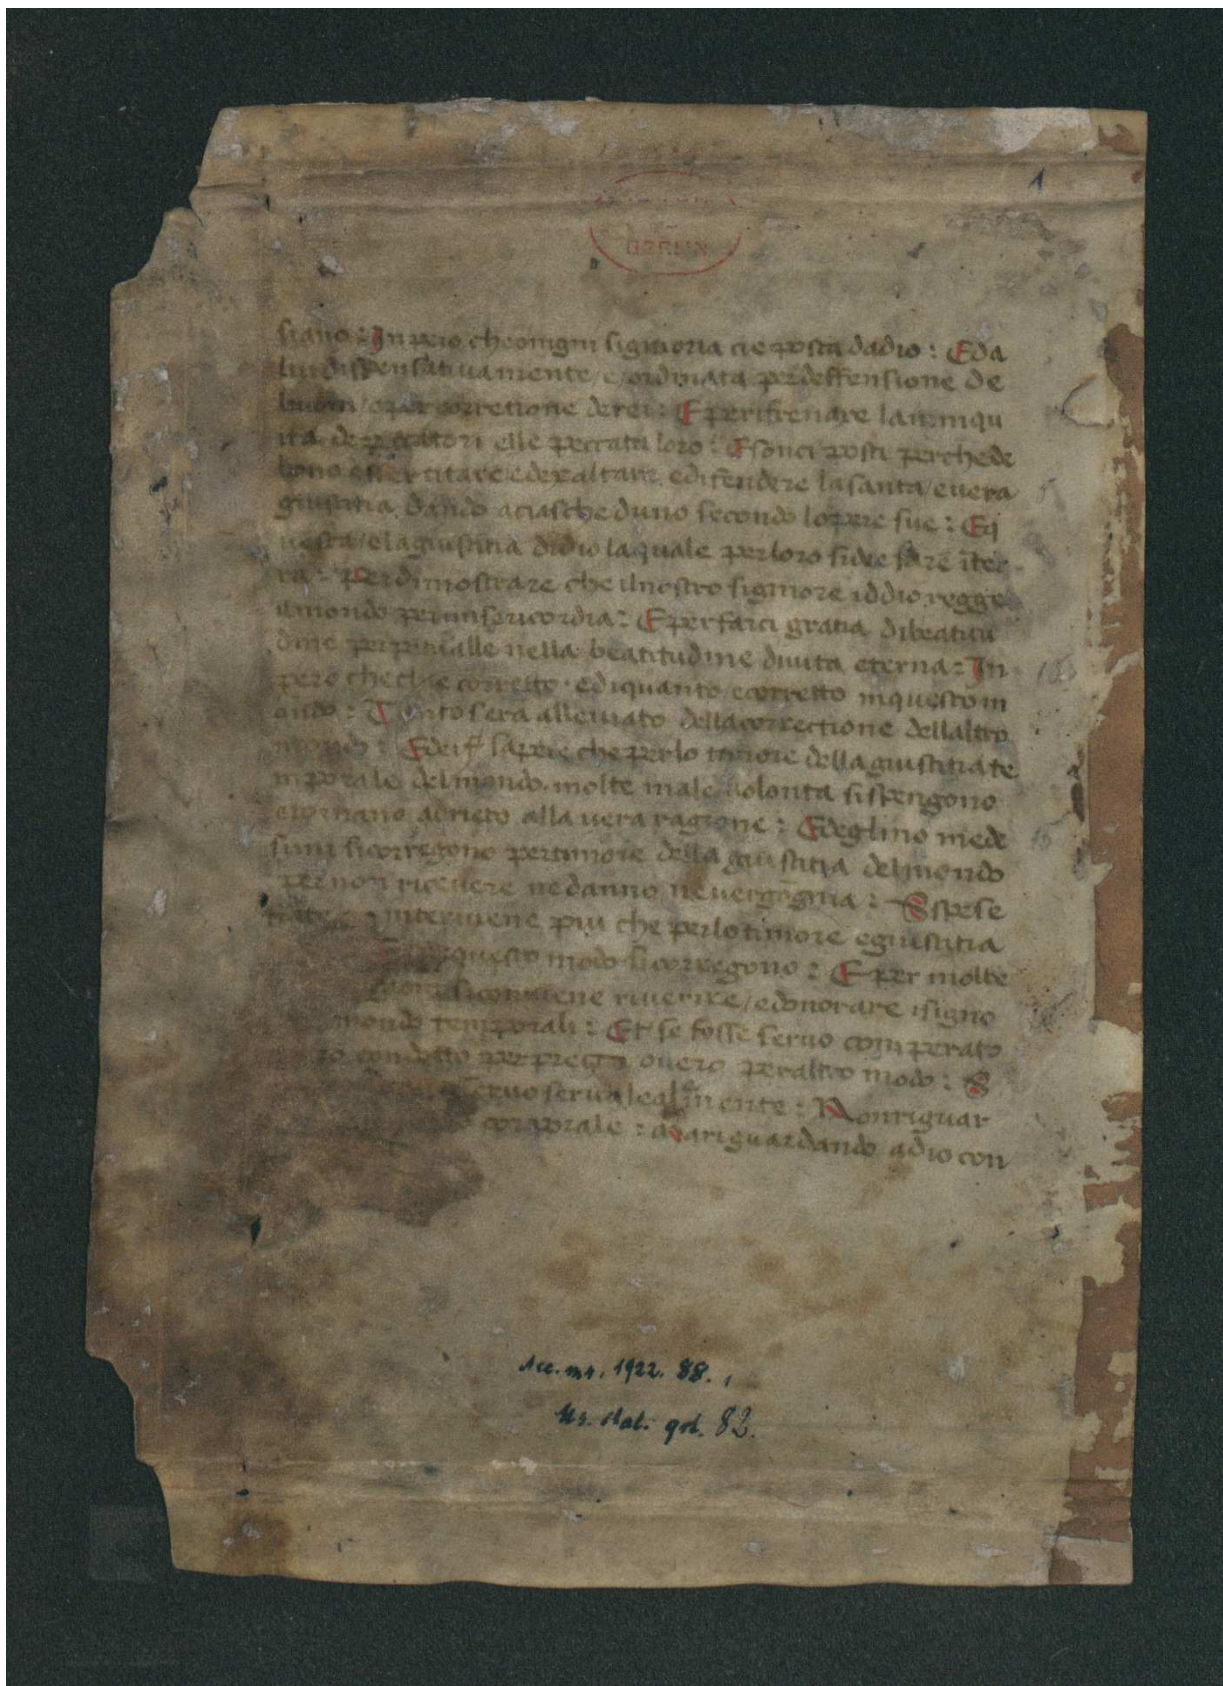 1
BERLIN
siano : In pero cheongni signioria cie posta dadio : Eda
lui dispensativamente / e / ordinata perdeffensione de
buoni / eper corretione derei : E perifrenare lainiqu
ita de peccatori elle peccata loro : Esonci posti perchede
bono essercitare ede exaltare edifendere lasanta / evera
giustitia dando aciascheduno secondo lopere sue : Eq
uesta / elagiustitia didio laquale perloro sidee fare iter-
ra : Perdimostrare che ilnostro signiore iddio regge
ilmondo permisericordia : Eperfarci gratia dibeatitu
dine perpetualle nella beatitudine divita eterna : In
pero chechie corretto · ediquanto / ecorretto inquestom
ondo : Tanto sera alleviato dellacorrectione dellaltro
mondo : Edeisi sapere che perlo timore della giustitia te
mporale delmondo molte male volonta sispengono
etornano adrieto alla vera ragione : Edeglino mede
simi sicorregono pertimore della giustitia delmondo
per non ricevere nedanno nevergognia : Espese
interviene piu che perlotimore egiustitia
questo modo sicorregono : E per molte
siconviene riverire / edonorare isigno
mondo temporali : Et se fosse servo comperato
condotto perpregi overo peraltro modo : S
servo serva lealmente : Nonriguar
corporale : Mariguardando adio con
Acc. ms. 1922. 88.
Ms. ital. qrt. 82.